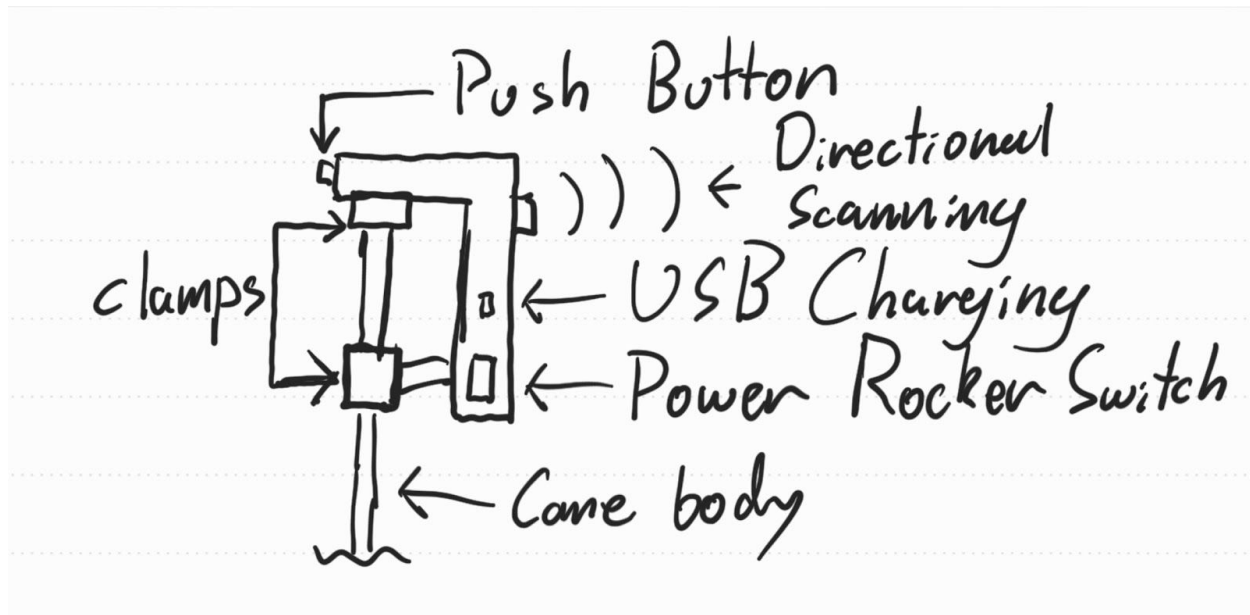 Push Button
Directional
Scanning
clamps
USB Charging
Power Rocker Switch
Cane body